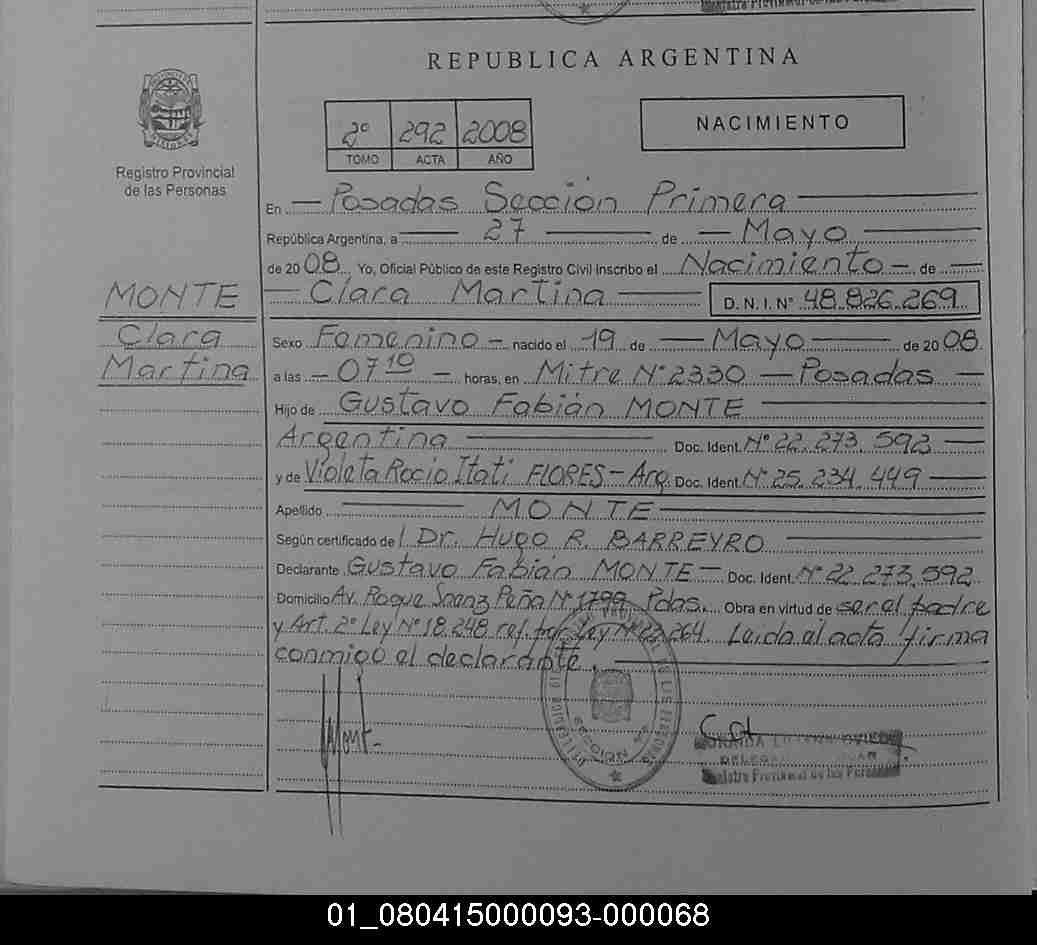 Registro Provincial de las Per
REPUBLICA ARGENTINA
2º 292 2008
TOMO ACTA AÑO
NACIMIENTO
Registro Provincial
de las Personas
En Posadas Sección Primera
República Argentina, a 27 de Mayo
de 2008 Yo, Oficial Público de este Registro Civil inscribo el Nacimiento de
MONTE
Clara
Martina
Clara Martina D.N.I.Nº 48.826.269
Sexo Femenino nacido el 19 de Mayo de 2008
a las 07 10 horas, en Mitre Nº 2330 Posadas
Hijo de Gustavo Fabián MONTE
Argentina Doc. Ident. Nº 22.273.592
y de Violeta Rocio Itati FLORES - Arg. Doc. Ident. Nº 25.234.449
Apellido MONTE
Según certificado del Dr. Hugo R. BARREYRO
Declarante Gustavo Fabián MONTE Doc. Ident. Nº 22.273.592
Domicilio Av. Roque Saenz Peña Nº 1799 Pdas. Obra en virtud de ser el padre
y Art. 2º Ley Nº 18.248 ref. por Ley Nº 23.264. Leida el acta firma
conmigo el declarante.
Mont
SECCION
OVIEDO
Registro Provincial de las Personas
01_080415000093-000068